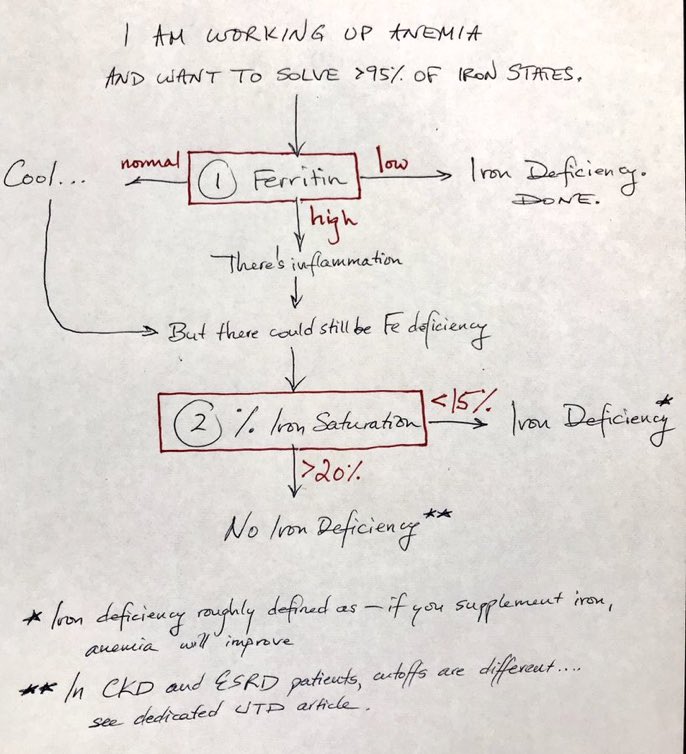 I AM WORKING UP ANEMIA
AND WANT TO SOLVE >95% OF IRON STATES.
Cool...
normal
① Ferritin
low
Iron Deficiency.
DONE.
high
There's inflammation
But there could still be Fe deficiency
② % Iron Saturation
<15%
Iron Deficiency*
>20%
No Iron Deficiency**
* Iron deficiency roughly defined as – if you supplement iron,
anemia will improve
** In CKD and ESRD patients, cutoffs are different....
see dedicated UTD article.